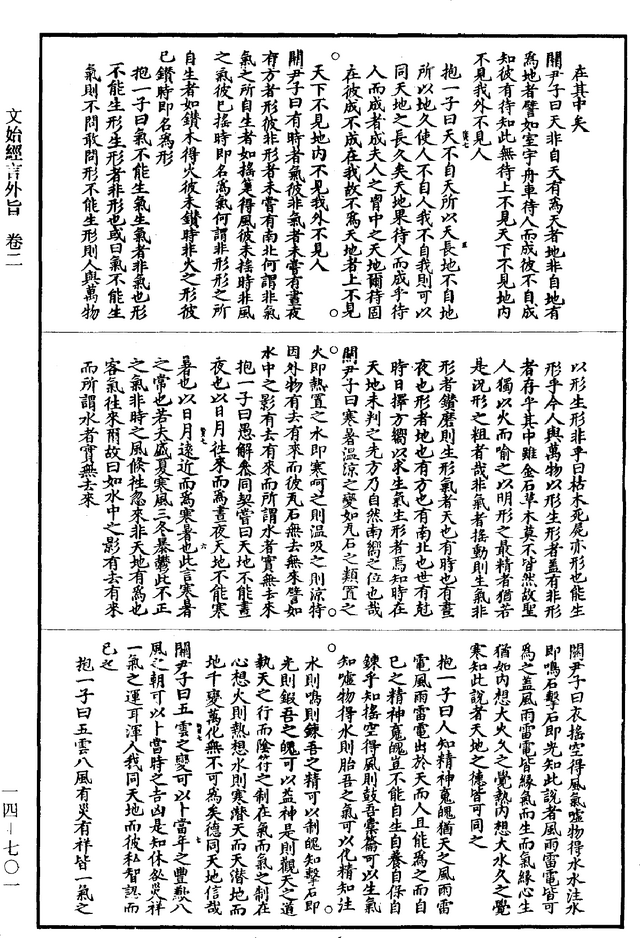 在其中矣
關尹子曰天非自天有爲天者地非自地有
爲地者譬如室宇舟車待人而成彼不自成
知彼有待知此無待上不見天下不見地內
不見我外不見人
抱一子曰天不自天所以天長地不自地
所以地久使人不自人我不自我則可以
同天地之長久矣天地果待人而成乎待
人而成者成夫人之胷中之天地爾待固
在彼成不成在我故不爲天地者上不見
天下不見地內不見我外不見人
關尹子曰有時者氣彼非氣者未嘗有晝夜
有方者形彼非形者未嘗有南北何謂非氣
氣之所自生者如搖箑得風彼未搖時非風
之氣彼已搖時即名爲氣何謂非形形之所
自生者如鑽木得火彼未鑽時非火之形彼
已鑽時即名爲形
抱一子曰氣不能生氣生氣者非氣也形
不能生形生形者非形也或曰氣不能生
氣則不問敢問形不能生形則人與萬物
以形生形非乎曰枯木死屍亦形也能生
形乎今人與萬物以形生形者蓋有非形
者存乎其中雖金石草木莫不皆然故聖
人獨以火而喻之以明形之最精者猶若
是況形之粗者哉非氣者搖動則生氣非
形者鑽磨則生形氣者天也有時也有晝
夜也形者地也有方也有南北也世有尅
時日擇方嚮以求生氣生形者焉知時在
天地未判之先方乃自然南嚮之位也哉
關尹子曰寒暑溫涼之變如瓦石之類置之
火即熱置之水即寒呵之則溫吸之則涼特
因外物有去有來而彼瓦石無去無來譬如
水中之影有去有來而所謂水者實無去來
抱一子曰愚解叅同契嘗曰天地不能晝
夜也以日月徃來而爲晝夜天地不能寒
暑也以日月遠近而爲寒暑也此言寒暑
之常也若夫盛夏寒風三冬暴鬱此不正
之氣非時之風倐徃忽來非天地有爲也
客氣徃來爾故曰如水中之影有去有來
而所謂水者實無去來
關尹子曰衣搖空得風氣噓物得水水注水
即鳴石擊石即光知此說者風雨雷電皆可
爲之蓋風雨雷電皆緣氣而生而氣緣心生
猶如內想大火久之覺熱內想大水久之覺
寒知此說者天地之德皆可同之
抱一子曰人知精神䰟魄猶天之風雨雷
電風雨雷電出於天而人且能爲之而自
已之精神䰟魄豈不能自生自養自保自
鍊乎知搖空得風則鼓吾橐籥可以生氣
知噓物得水則胎吾之氣可以化精知注
水則鳴則鍊吾之精可以制魄知擊石即
光則鍛吾之魄可以益神是則觀天之道
執天之行而陰符之制在氣而氣之制在
心想火則熱想水則寒潛天而天潛地而
地千變萬化無不可爲矣德同天地信哉
關尹子曰五雲之變可以卜當年之豐歉八
風之朝可以卜當時之吉凶是知休咎災祥
一氣之運耳渾人我同天地而彼私智認而
已之
抱一子曰五雲八風有災有祥皆一氣之
文始經言外旨 卷二
一四-七〇一